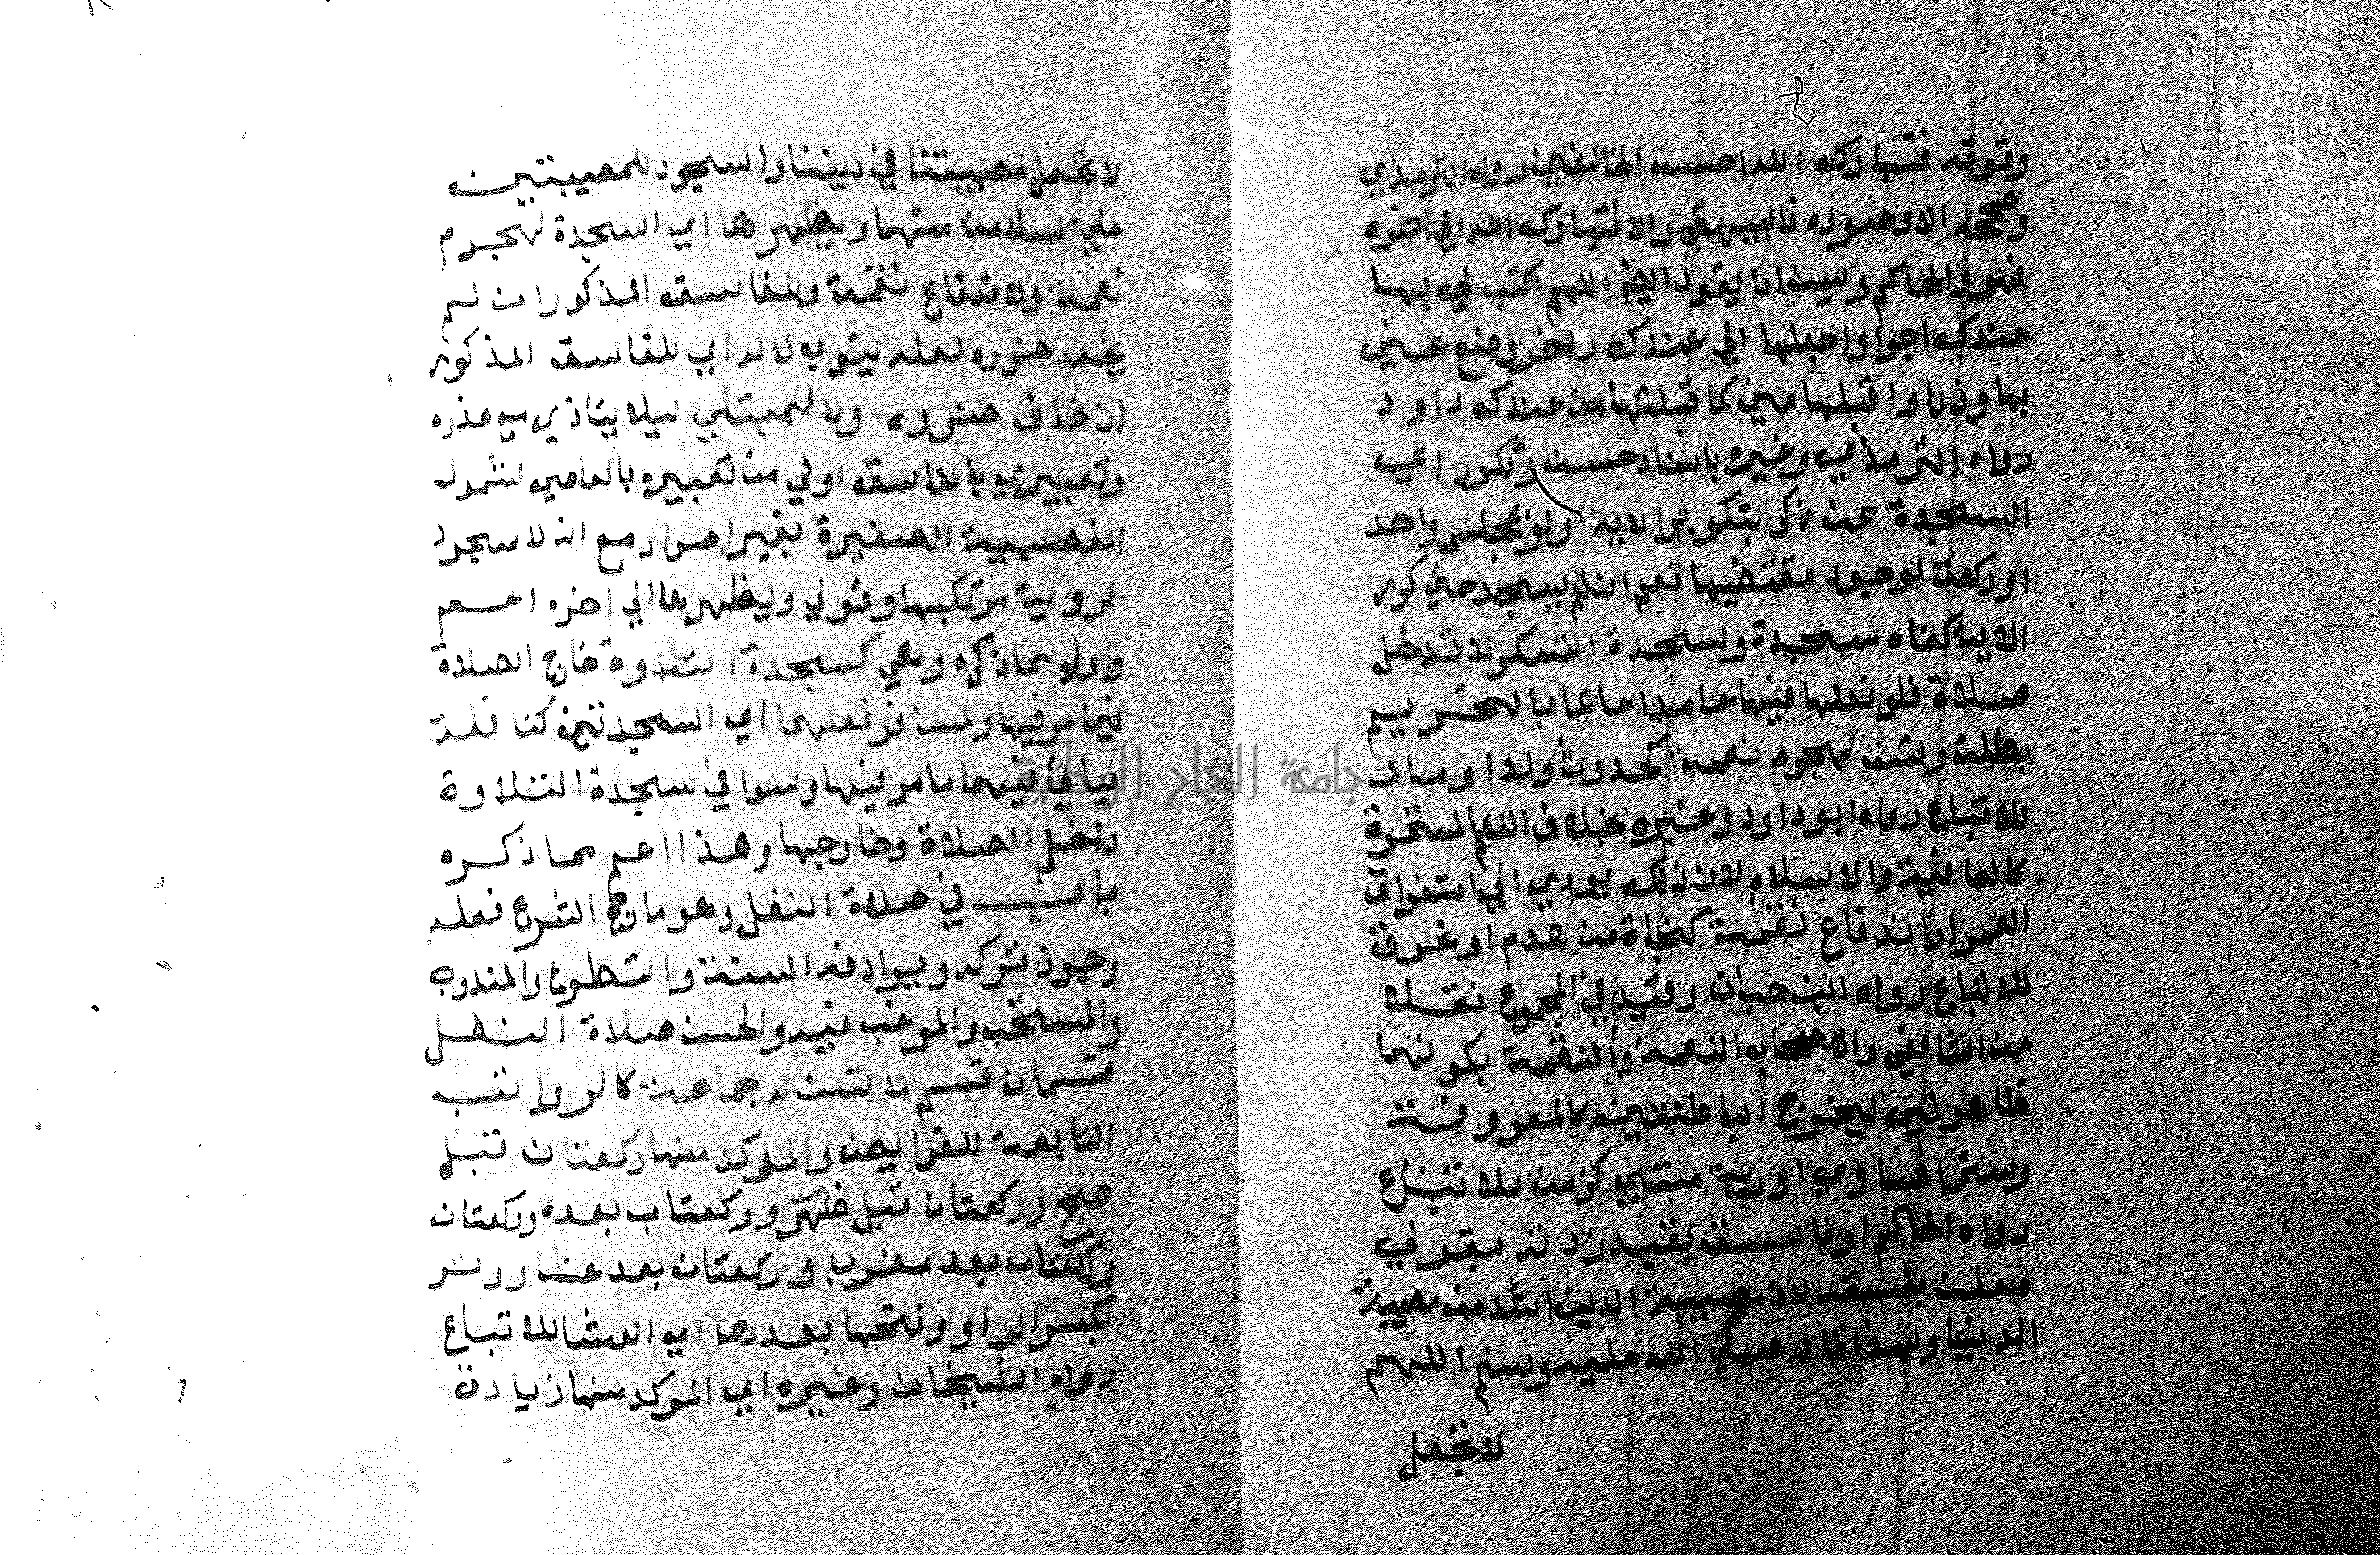 وقوته فتبارك الله احسن الخالقين رواه الترمذي
وصححه الا وصوره فالبيهقي والا فتبارك الله الي اخره
فهو والحاكم ويسن ان يقول ايضا اللهم اكتب لي بها
عندك اجرا واجعلها الي عندك ذخرا وضع عني
بها وزرا واقبلها مني كما قبلتها من عبدك داود
رواه الترمذي وغيره باسناد حسن وتكرر اي
السجدة ممن ذكر بتكرير الاية ولو بمجلس واحد
او ركعة لوجود مقتضيها نعم ان لم يسجد حتي كرر
الاية كفاه سجدة وسجدة الشكر لا تدخل
صلاة فلو فعلها فيها عامدا عالما بالتحريم
بطلت وتسن لهجوم نعمة كحدوث ولد او مال
للاتباع رواه ابو داود وغيره بخلاف النعم المستمرة
كالعافية والاسلام لان ذلك يودي الي استغراق
العمر او اندفاع نقمة كنجاة من هدم او غرق
للاتباع رواه ابن حبان وقيد في المجموع نقلا
عن الشافعي والاصحاب النعمة والنقمة بكونهما
ظاهرتين ليخرج الباطنتين كالمعرفة
وستر المساوي او رية مبتلي كزمن للاتباع
رواه الحاكم او فاسق بقيد زدته بقولي
معلن بفسقه لان مصيبة الدين اشد من مصيبة
الدنيا ولهذا قال صلي الله عليه وسلم اللهم
لا تجعل
لا تجعل مصيبتنا في ديننا والسجود للمصيبتين
علي السلامة منهما ويظهرها اي السجدة لهجوم
نعمة ولاندفاع نقمة وللفاسق المذكور ان لم
يخف ضرره لعله يتوب لا له اي للفاسق المذكور
ان خاف ضرره ولا للمبتلي ليلا يتاذي مع عذره
وتعبيري بالفاسق اولي من تعبيره بالعاصي لشمول
المعصية الصغيرة بغير اصرار مع انه لا سجود
لروية مرتكبها وقولي ويظهرها الي اخره اعم
واولي مما ذكره وهي كسجدة التلاوة خارج الصلاة
فيما مر فيها ولمسافر فعلهما اي السجدتين كنافلة
فياتي فيهما ما مر فيها وسوا في سجدة التلاوة
داخل الصلاة وخارجها وهذا اعم مما ذكره
باب في صلاة النفل وهو ما رجح الشرع فعله
وجوز تركه ويرادفه السنة والتطوع والمندوب
والمستحب والمرغب فيه والحسن صلاة النفل
قسمان قسم لا تسن له جماعة كالرواتب
التابعة للفرايض والموكد منها ركعتان قبل
صبح وركعتان قبل ظهر وركعتان بعده وركعتان
وركعتان بعد مغرب وركعتان بعد عشا ووتر
بكسر الواو وفتحها بعدها اي العشا للاتباع
رواه الشيخان وغيره اي الموكد منها زيادة
جامعة النجاح الوطنية